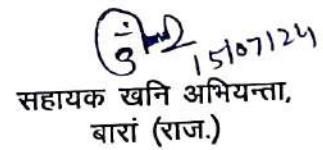 15/07/24
सहायक खनि अभियन्ता,
बारां (राज.)